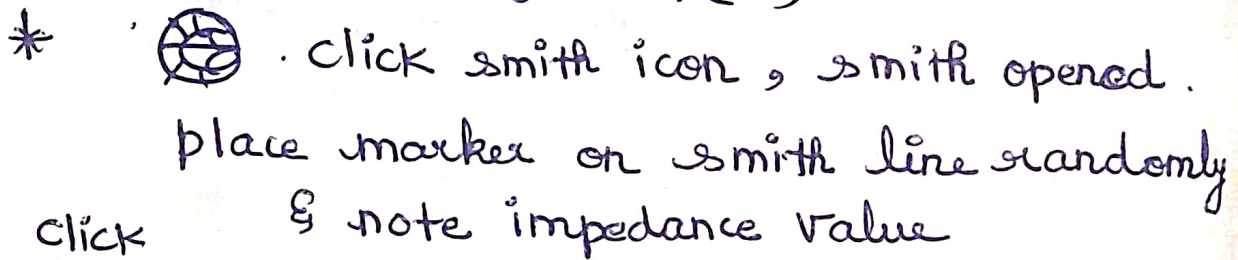 * . click smith icon, smith opened.
place marker on smith line randomly
click & note impedance value